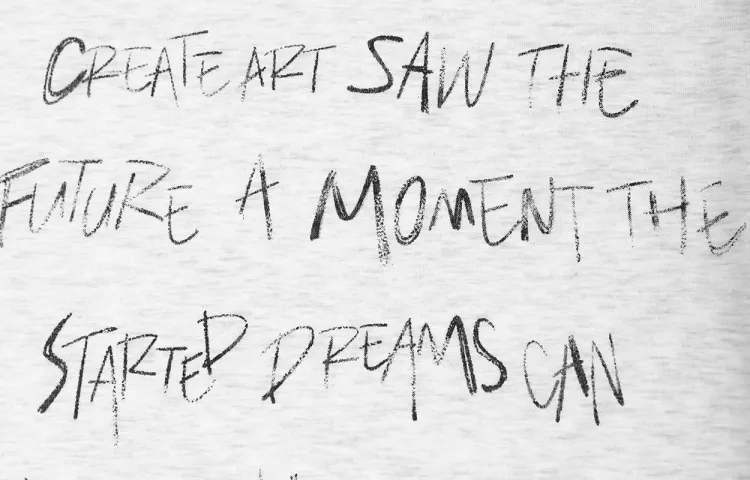 CREATE ART SAW THE
FUTURE A MOMENT THE
STARTED DREAMS CAN